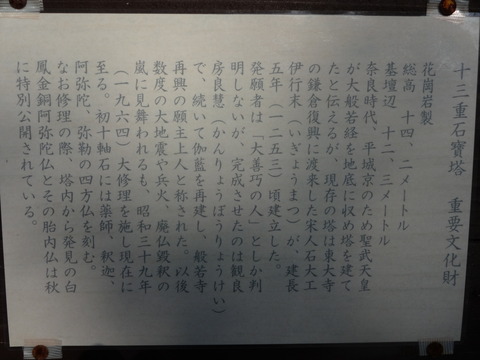 十三重石寶塔　重要文化財
花崗岩製
総高　十四、二メートル
基壇辺　十二、三メートル
奈良時代、平城京のため聖武天皇
が大般若経を地底に収め塔を建て
たと伝えるが、現存の塔は東大寺
の鎌倉復興に渡来した宋人石大工
伊行末（いぎょうまつ）が、建長
五年（一二五三）頃建立した。
発願者は「大善巧の人」としか判
明しないが、完成させたのは観良
房良慧（かんりょうぼうりょうけい）
で、続いて伽藍を再建し、般若寺
再興の願主上人と称された。以後
数度の大地震や兵火、廃仏毀釈の
嵐に見舞われるも、昭和三十九年
（一九六四）大修理を施し現在に
至る。初十軸石には薬師、釈迦、
阿弥陀、弥勒の四方仏を刻む。
なお修理の際、塔内から発見の白
鳳金銅阿弥陀仏とその胎内仏は秋
に特別公開されている。